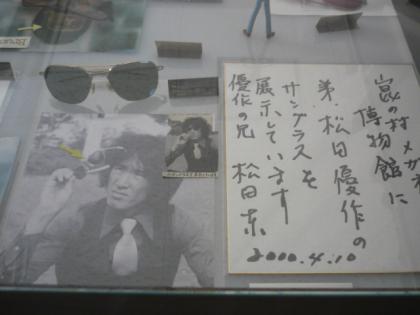 の村メガネ
博物館に
弟・松田優作の
サングラスを
展示しています
優作の兄 松田東
2000.4.10